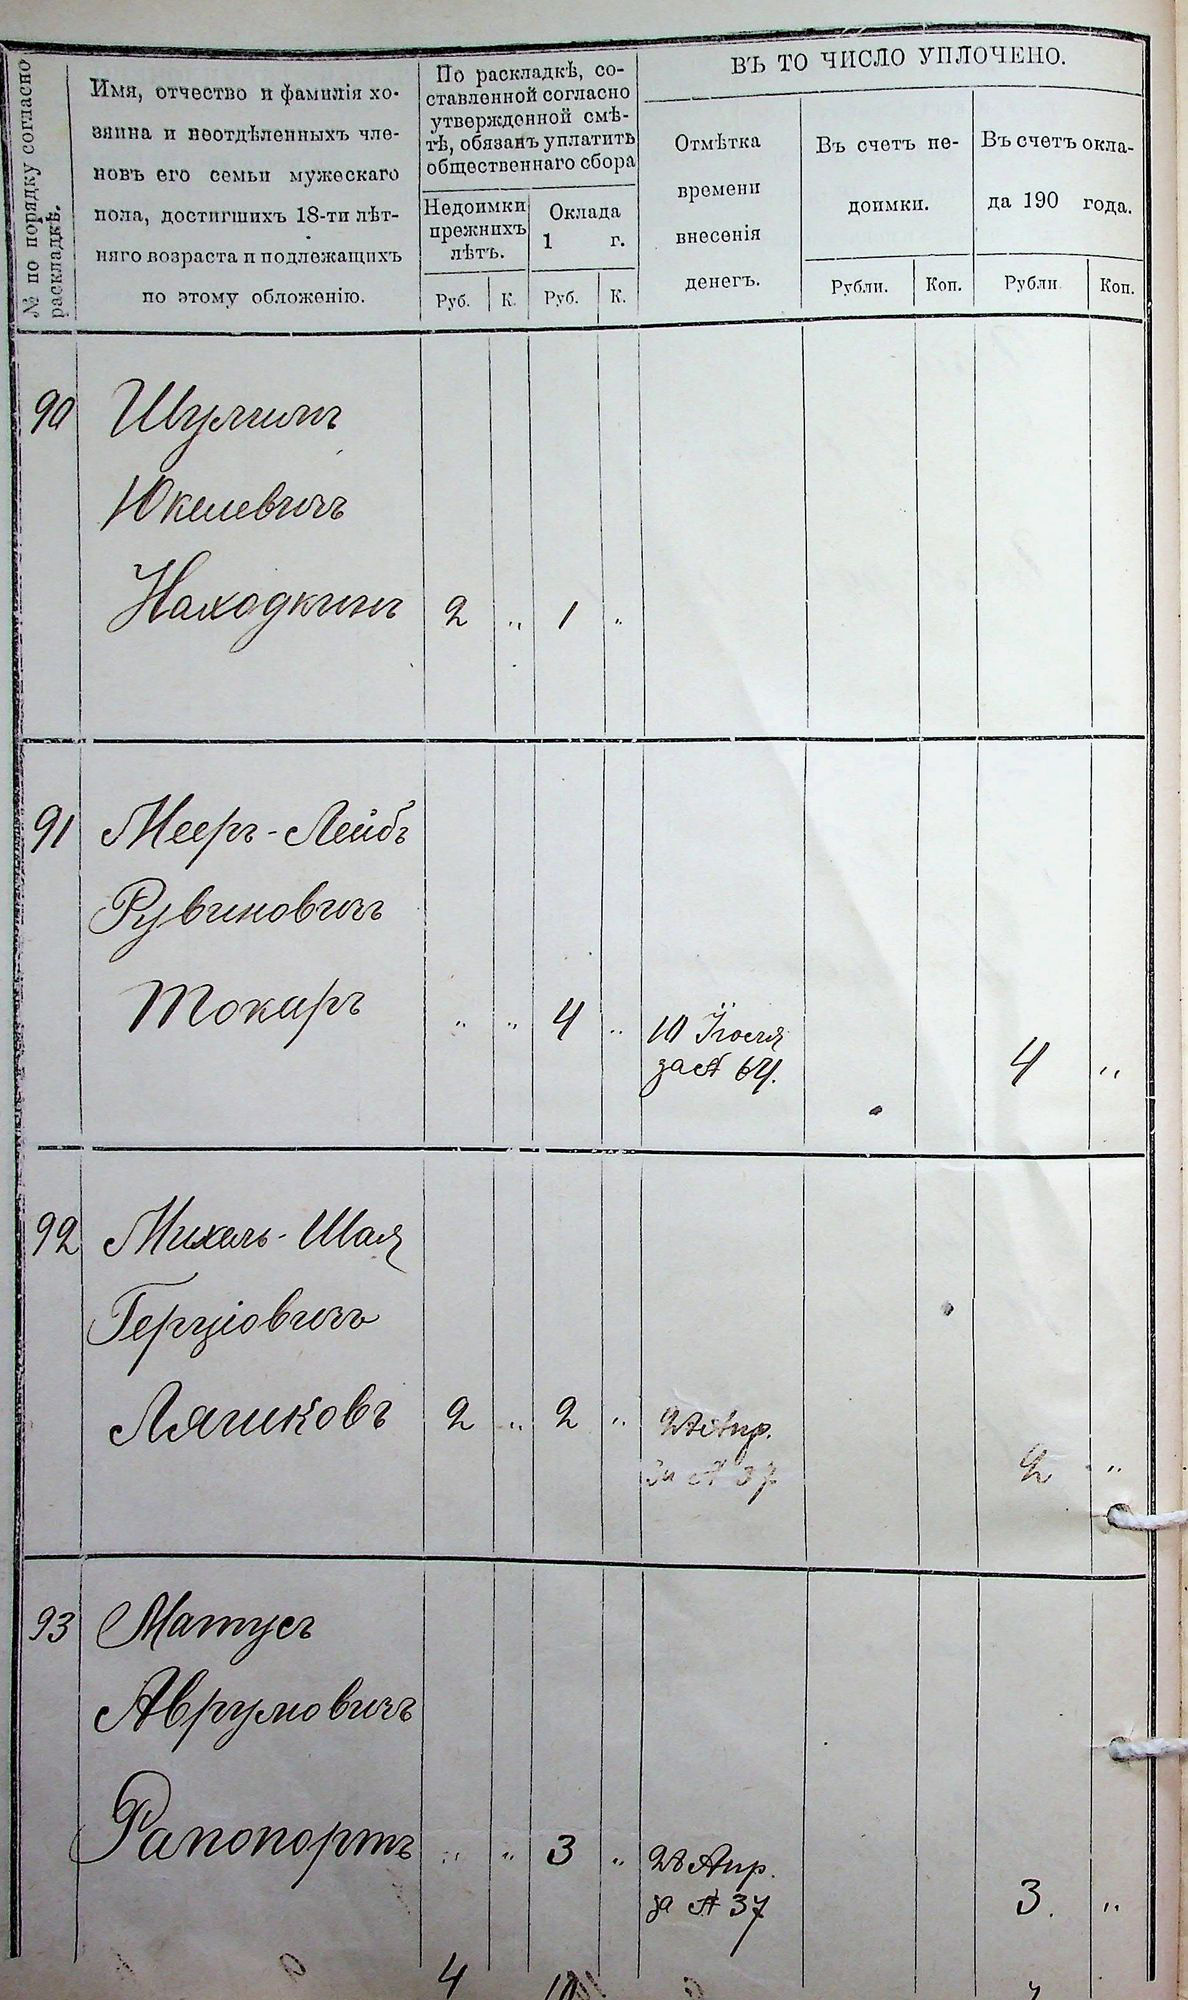 № по порядку согласно
раскладкѣ.
Имя, отчество и фамилія хо-
зяина и неотдѣленныхъ чле-
новъ его семьи мужескаго
пола, достигшихъ 18-ти лѣт-
няго возраста и подлежащихъ
по этому обложенію.
По раскладкѣ, со-
ставленной согласно
утвержденной смѣ-
тѣ, обязанъ уплатить
общественнаго сбора
Недоимки
прежнихъ
лѣтъ.
Руб. К.
Оклада
1 г.
Руб. К.
ВЪ ТО ЧИСЛО УПЛОЧЕНО.
Отмѣтка
времени
внесенія
денегъ.
Въ счетъ не-
доимки.
Рубли. Коп.
Въ счетъ окла-
да 190 года.
Рубли Коп.
90 Шулимъ
Юкелевичъ
Находкинъ 2 " 1 "
91 Мееръ-Лейбъ
Рувиновичъ
Токаръ " " 4 " 10 Іюля
за № 64. 4 "
92 Михель-Шая
Герціовичъ
Ляшковъ 2 " 2 " Апр.
за № 37 2 "
93 Матусъ
Аврумовичъ
Рапопортъ " " 3 " 28 Апр.
за № 37 3. "
4 10